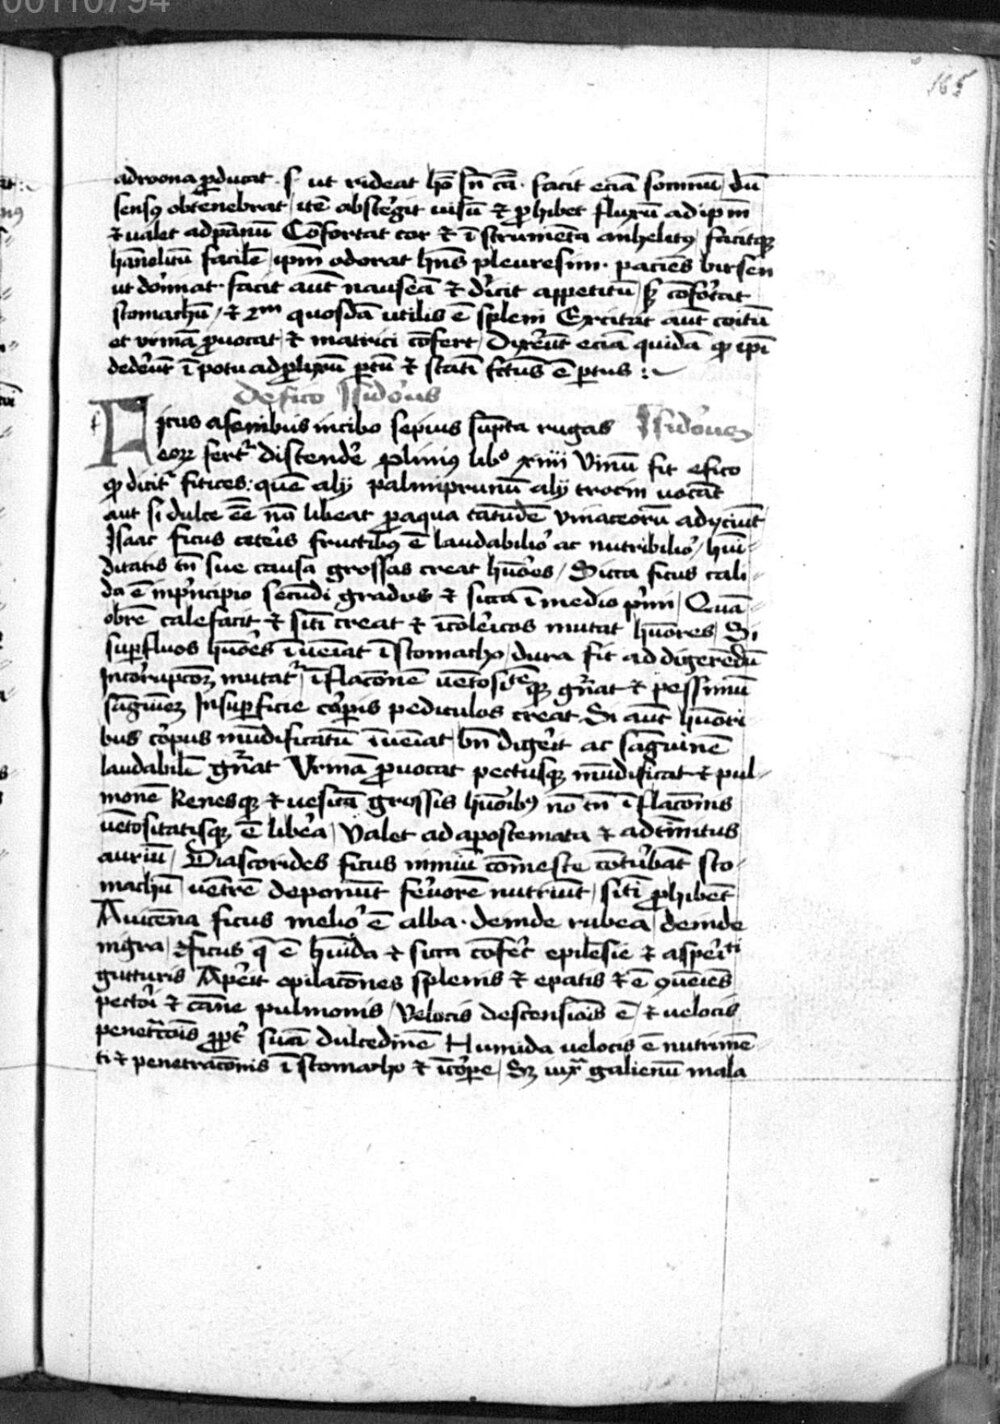 00110794
165
ad vona ꝑducat · s ut rideat hō sn̄ cā · facit eciā somnū / dū
sensꝰ obtenebrat / itē abst'git uisū ⁊ ꝓhibet fluxū ad ip̄m
⁊ ualet ad pānū Cōfortat cor ⁊ īstrumēta anhelitꝰ / facitqꝫ
hanelitū facilē / ip̄m odorat hn̄s pleuresim · paciēs
ut dormiat · facit aut̄ nauseā ⁊ d'icit appetitū / sꝫ cōfortat
stomachū / ⁊ 2m quosdā utilis ē spleni Excitat aut̄ coitū
et vrinā ꝓuocat ⁊ matrici cōfert / Dyxerūt eciā quidā ꝙ ip̄i
dederūt ī potu ad ꝓlixū ꝑtū ⁊ statī fctūs ē ꝑtus :~
De fico Isidorus
Ficus a senibus in cibo sepius sūpta rugas Isidorus
eoꝝ fert' distende' plinꝰ libº xiiii Vinū fit e fico
ꝙ dicit' fitices : quē alij palmiprunū alij trocin uocāt
aut si dulce eē nō libeat ꝓ aqua tātūdē vinaceorū adyciūt
Isaac ficus ceteris fructibꝰ ē laudabilior ac nutribilior / hūi-
ditatis tn̄ sue causa grossos creat hūores / Sicca ficus cali-
da ē in pͥncipio secūdi gradus ⁊ sicca ī medio pͥmi / Quā-
obrē calefacit ⁊ sitī creat ⁊ ī colericos mutat hūores / Si
suꝑfluos hūores īueiat ī stomacho / dura fit ad digerēdū
In corrupcōꝫ mutat' / īflacōnē uētositeqꝫ gn̄at ⁊ pessimū
sāguinē In suꝑficie corꝑis pediculos creat Si aut̄ hūori
bus corpus mūdificatū īueiat bn̄ digerit ac sāguinē
laudabilē gn̄at Vrinā ꝓuocat pectusqꝫ mūdificat ⁊ pul-
monē Renesqꝫ ⁊ uesicā grossis hūoribꝰ nō tn̄ īflacōnis
uētositatisqꝫ ē libera / Valet ad apostemata ⁊ ad tinnitus
auriū / Diascorides ficus nimiū cōmeste cōturbāt sto-
machū uētrē deponūt feruorē nutriūt / sitī ꝓhibēt
Auicēna ficus melior ē alba · deinde rubea / deinde
nigra / ficus q̄ ē hūida ⁊ sicca cōfert epilēsie ⁊ asperitī
gutturis Aperit opilacōnes splenis ⁊ epatis ⁊ ē ꝯueīes
pectori ⁊ cāne pulmonis / velocis descensiōis ē / ⁊ velocis
penetracōis ꝓpt' suā dulcedinē Humida uelocis ē nutrimē-
ti ⁊ penetracōnis ī stomacho ⁊ ī corꝑe / Sꝫ iuxᵃ galienū mala